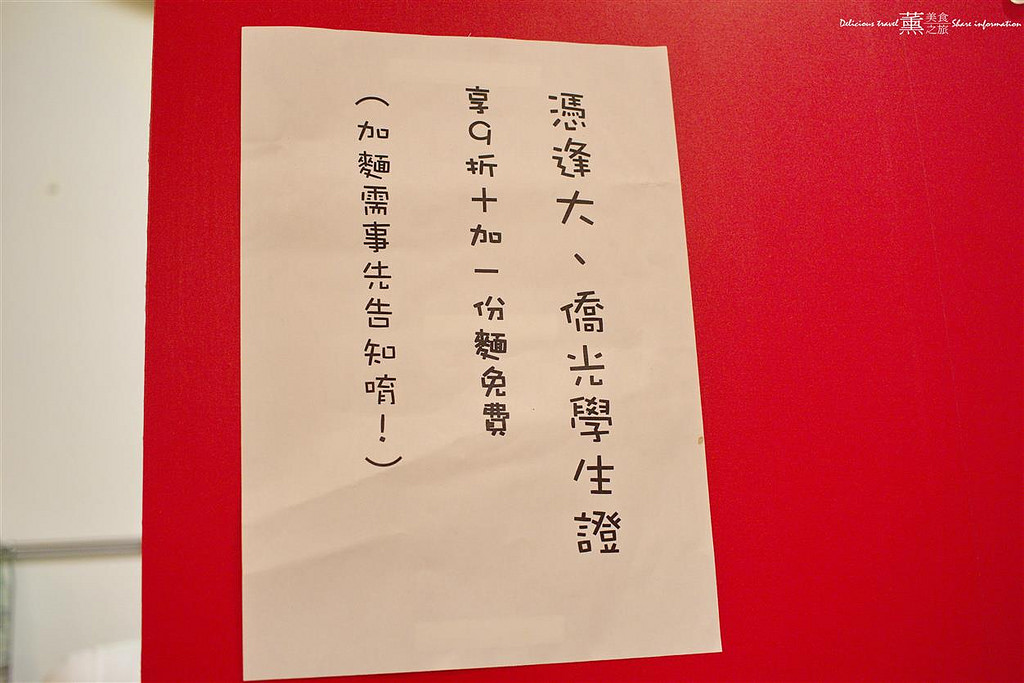 憑逢大、僑光學生證
享9折+加一份麵免費
(加麵需事先告知唷!)
Delicious travel 薰 美食之旅 Share information